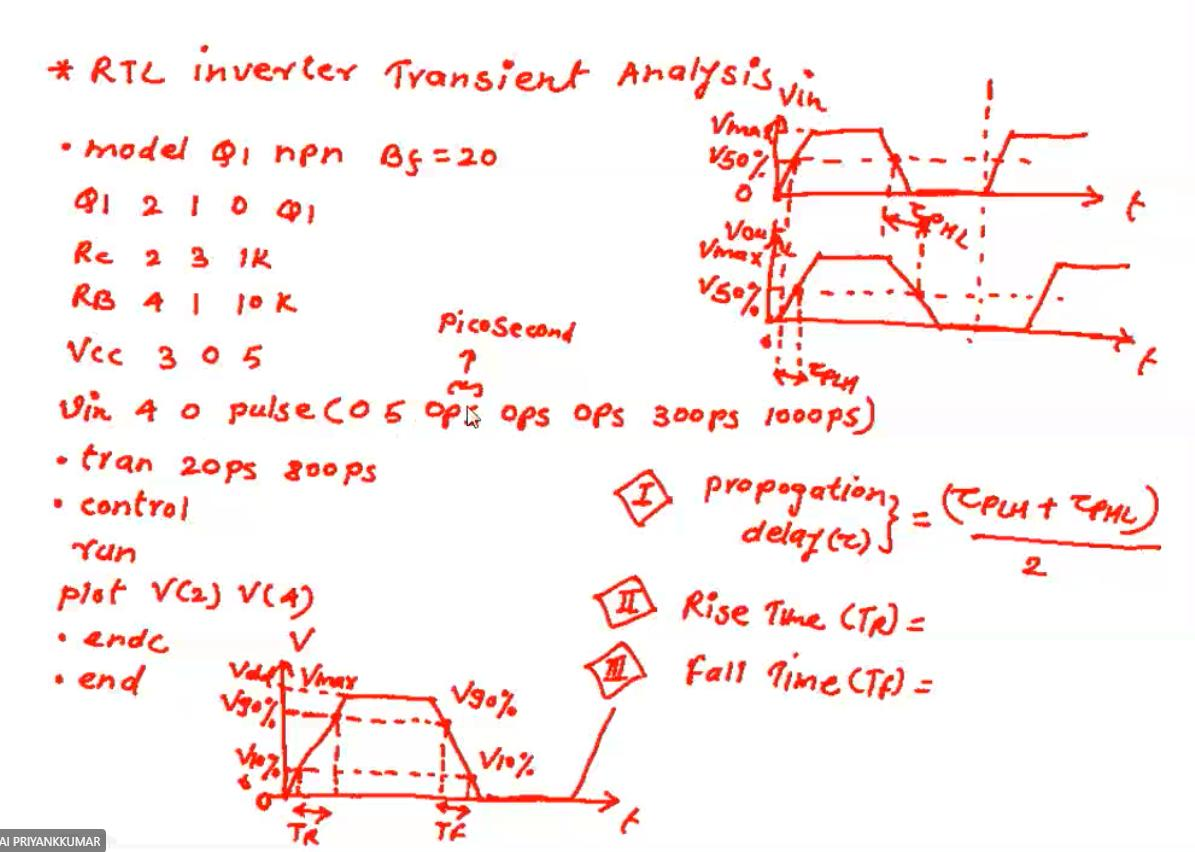 * RTL inverter Transient Analysis
• model Q1 npn Bf=20
Q1 2 1 0 Q1
Rc 2 3 1K
RB 4 1 10K
Vcc 3 0 5
picosecond
Vin 4 0 pulse(0 5 0ps 0ps 0ps 300ps 1000ps)
• tran 20ps 800ps
• control
run
plot V(2) V(4)
• endc
• end
Vin
Vmax
V50%
0
t
τPHL
Vout
Vmax
V50%
t
τPLH
I propogation delay(τ) } = (τPLH + τPHL)
2
II Rise Time (TR) =
III Fall Time (Tf) =
V
Vdd Vmax
V90% V90%
V10% V10%
0
TR TF t
AI PRIYANKKUMAR